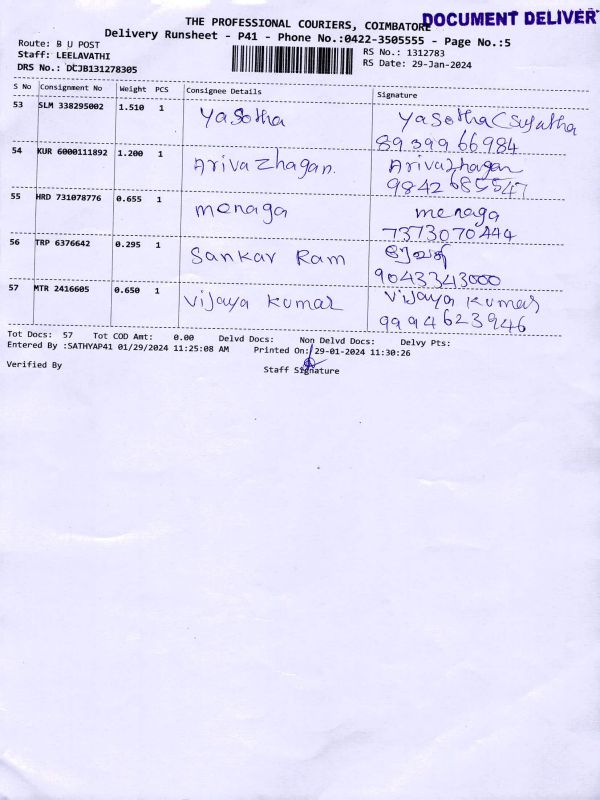 THE PROFESSIONAL COURIERS, COIMBATORE
DOCUMENT DELIVER
Delivery Runsheet - P41 - Phone No.:0422-3505555 - Page No.:5
Route: B U POST
RS No.: 1312783
Staff: LEELAVATHI
RS Date: 29-Jan-2024
DRS No.: DCJB131278305
S No Consignment No Weight PCS Consignee Details Signature
53 SLM 338295002 1.510 1 Yasotha Yasotha (Sujatha
8939966984
54 KUR 6000111892 1.200 1 Arivazhagan. Arivazhagan
9842685547
55 HRD 731078776 0.655 1 menaga menaga
7373070444
56 TRP 6376642 0.295 1 Sankar Ram ரேவதி
9043343000
57 MTR 2416605 0.650 1 Vijaya Kumar Vijaya Kumar
9994623946
Tot Docs: 57 Tot COD Amt: 0.00 Delvd Docs: Non Delvd Docs: Delvy Pts:
Entered By :SATHYAP41 01/29/2024 11:25:08 AM Printed On: 29-01-2024 11:30:26
Verified By
Staff Signature